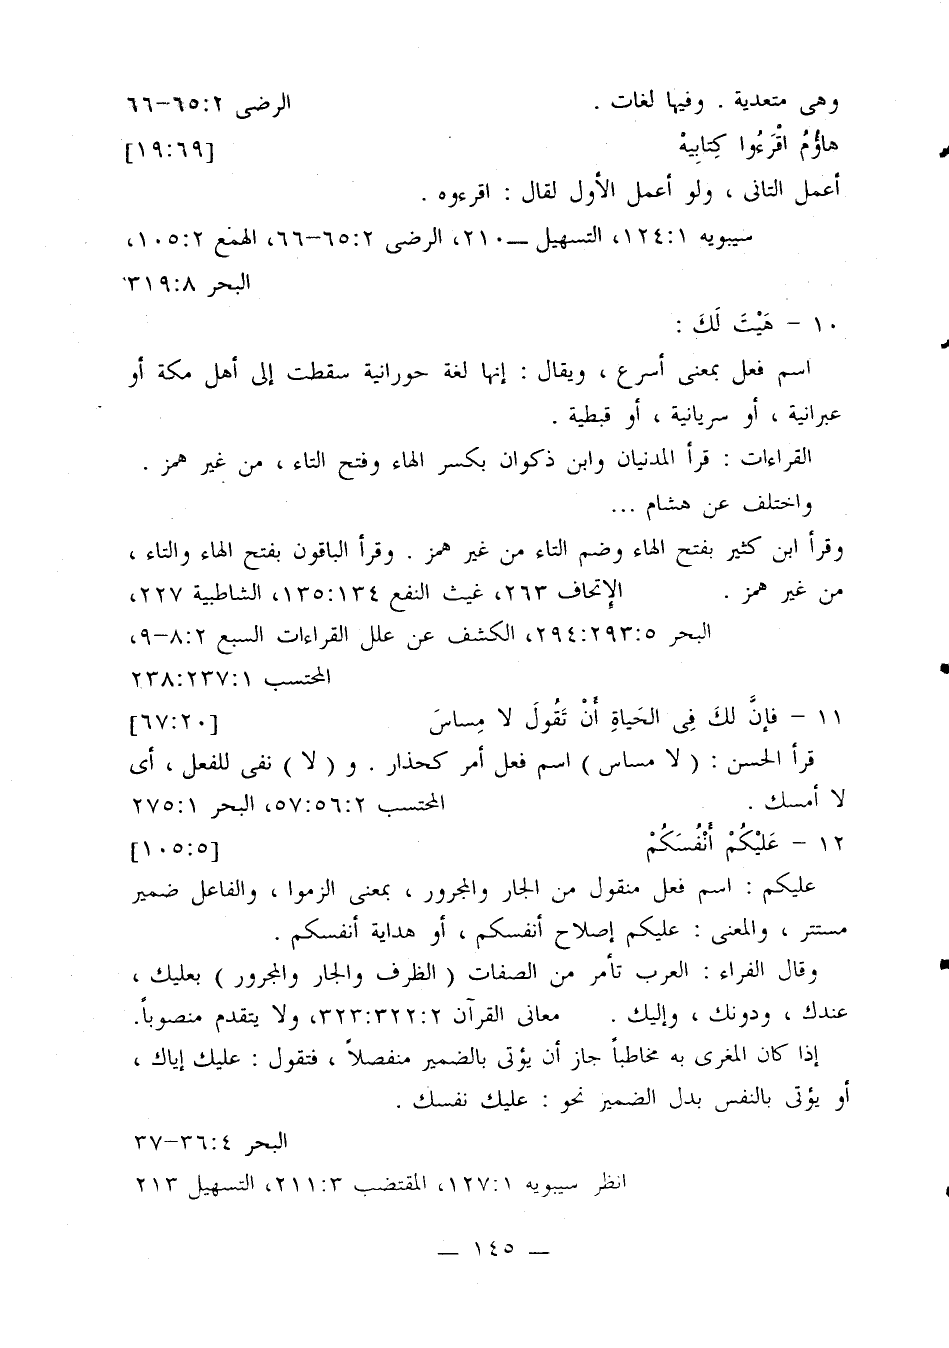 وهى متعدية . وفيها لغات . الرضى ٢:٦٥–٦٦
هاؤُمُ اقْرَءُوا كِتابِيهْ [١٩:٦٩]
أعمل الثانى ، ولو أعمل الأول لقال : اقرءوه .
سيبويه ١:١٢٤، التسهيل —٢١٠، الرضى ٢:٦٥–٦٦، الهمع ٢:١٠٥،
البحر ٨:٣١٩
١٠ – هَيْتَ لَكَ :
اسم فعل بمعنى أسرع ، ويقال : إنها لغة حورانية سقطت إلى أهل مكة أو
عبرانية ، أو سريانية ، أو قبطية .
القراءات : قرأ المدنيان وابن ذكوان بكسر الهاء وفتح التاء ، من غير همز .
واختلف عن هشام ...
وقرأ ابن كثير بفتح الهاء وضم التاء من غير همز . وقرأ الباقون بفتح الهاء والتاء ،
من غير همز . الإتحاف ٢٦٣، غيث النفع ١٣٤:١٣٥، الشاطبية ٢٢٧،
البحر ٥:٢٩٣:٢٩٤، الكشف عن علل القراءات السبع ٢:٨–٩،
المحتسب ١:٢٣٧:٢٣٨
١١ – فإنَّ لكَ فِى الحَياةِ أَنْ تَقُولَ لا مِساسَ [٦٧:٢٠]
قرأ الحسن : ( لا مساس ) اسم فعل أمر كحذار . و ( لا ) نفى للفعل ، أى
لا أمسك . المحتسب ٢:٥٦:٥٧، البحر ١:٢٧٥
١٢ – عَلَيْكُمْ أَنْفُسَكُمْ [١٠٥:٥]
عليكم : اسم فعل منقول من الجار والمجرور ، بمعنى الزموا ، والفاعل ضمير
مستتر ، والمعنى : عليكم إصلاح أنفسكم ، أو هداية أنفسكم .
وقال الفراء : العرب تأمر من الصفات ( الظرف والجار والمجرور ) بعليك ،
عندك ، ودونك ، وإليك . معانى القرآن ٢:٣٢٢:٣٢٣، ولا يتقدم منصوباً.
إذا كان المغرى به مخاطباً جاز أن يؤتى بالضمير منفصلاً ، فتقول : عليك إياك ،
أو يؤتى بالنفس بدل الضمير نحو : عليك نفسك .
البحر ٤:٣٦–٣٧
انظر سيبويه ١:١٢٧، المقتضب ٣:٢١١، التسهيل ٢١٣
— ١٤٥ —